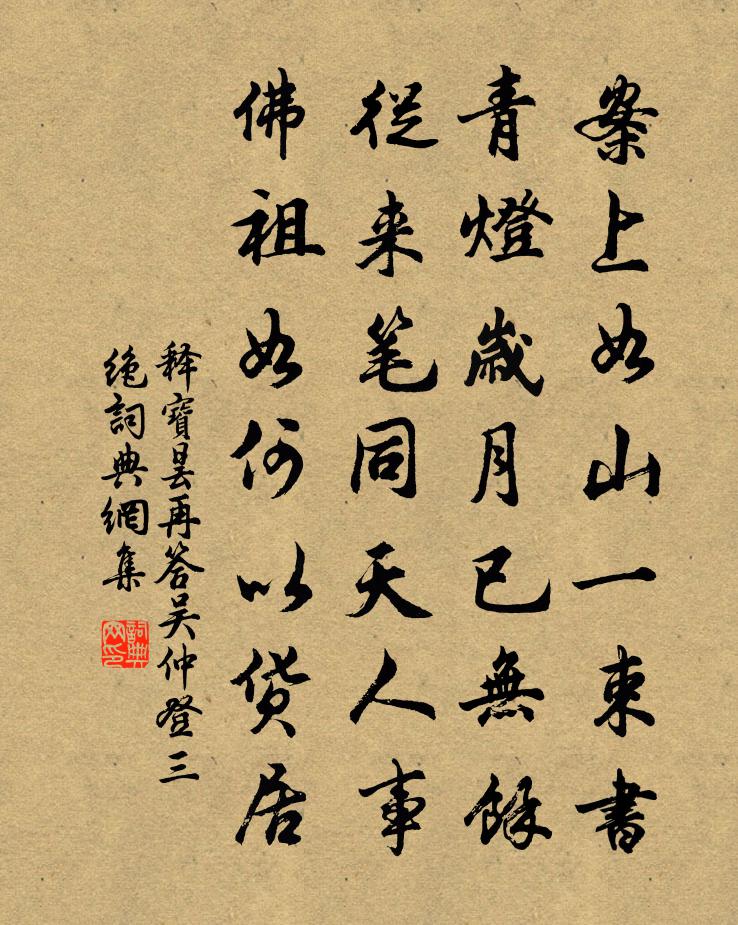 案上如山一束書
青燈歲月已無餘
從来笔同天人事
佛祖如何以货居
释寶曇再答吴仲登三
绝詞典網集
詞典
网印